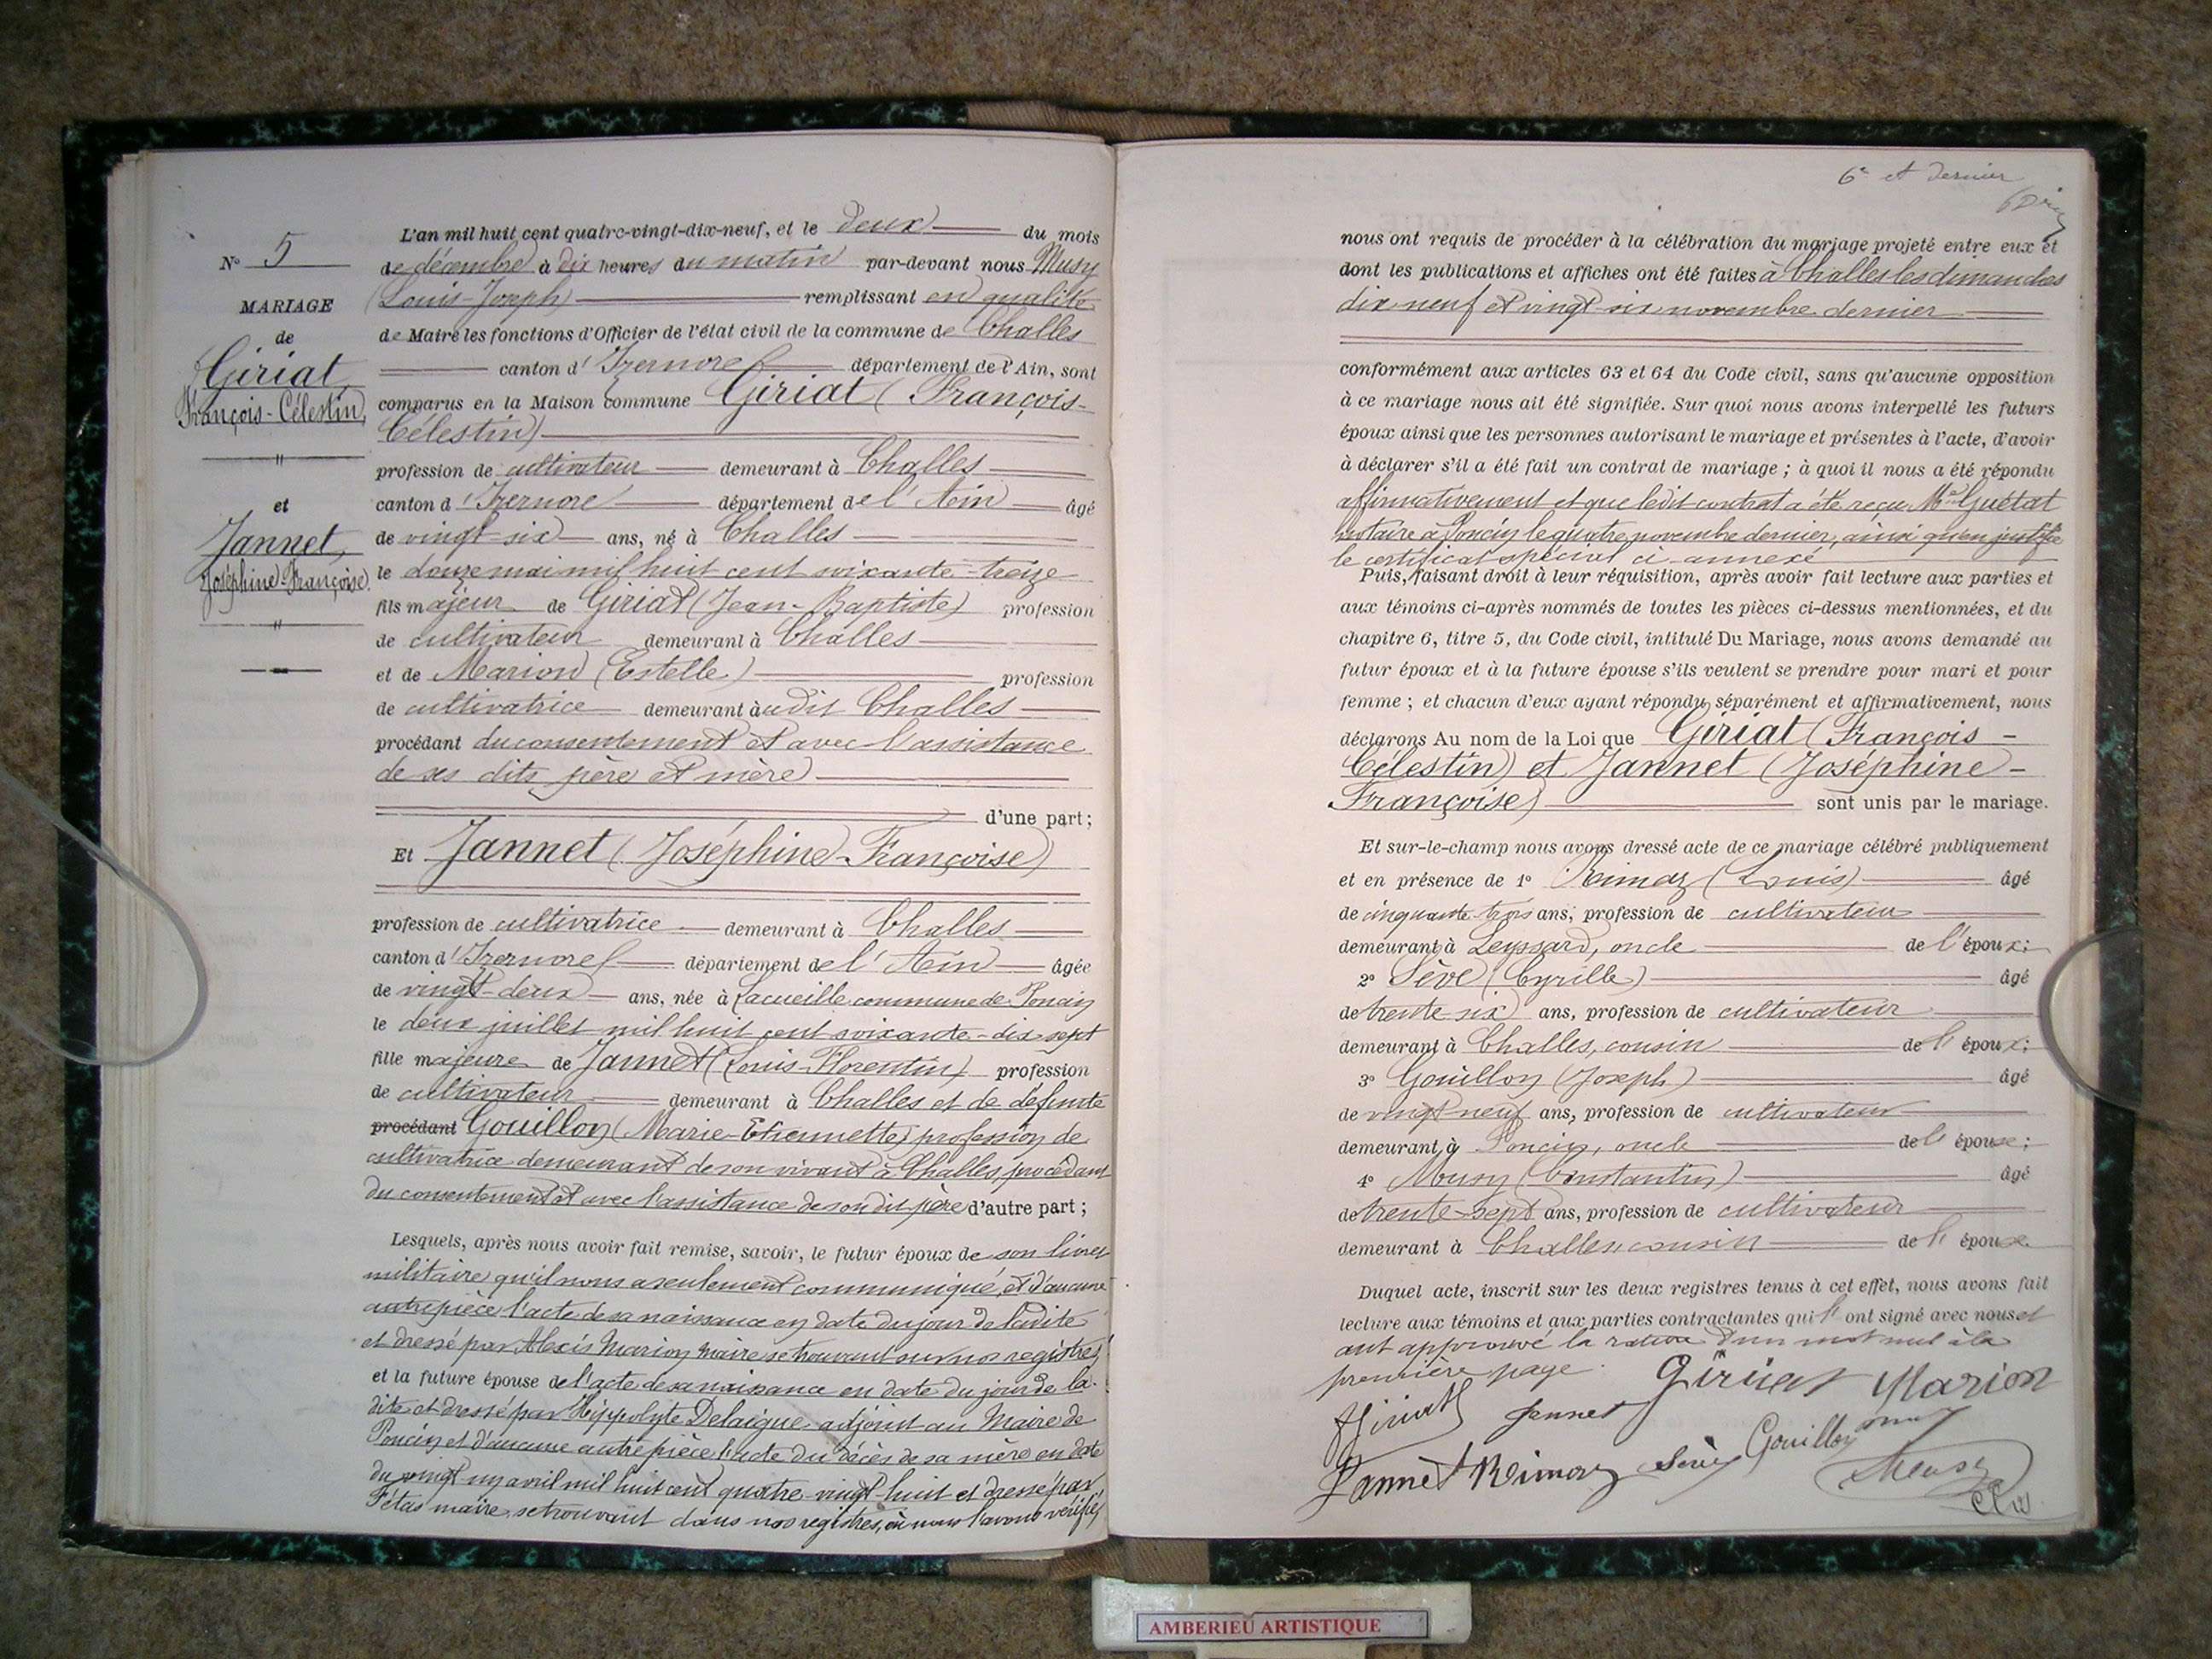 N° 5
MARIAGE
de
Giriat,
François-Célestin,
"
et
Jannet,
Joséphine-Françoise.
"
L'an mil huit cent quatre-vingt-dix-neuf, et le deux du mois
de décembre à dix heures du matin par-devant nous Musy
(Louis-Joseph) remplissant en qualité
de Maire les fonctions d'Officier de l'état civil de la commune de Challes
canton d'Izernore département de l'Ain, sont
comparus en la Maison commune Giriat (François-
Célestin)
profession de cultivateur demeurant à Challes
canton d'Izernore département de l'Ain âgé
de vingt-six ans, né à Challes
le douze mai mil huit cent soixante-treize
fils majeur de Giriat (Jean-Baptiste) profession
de cultivateur demeurant à Challes
et de Marion (Estelle) profession
de cultivatrice demeurant àudit Challes
procédant du consentement et avec l'assistance
de ses dits père et mère
d'une part;
Et Jannet (Joséphine-Françoise)
profession de cultivatrice demeurant à Challes
canton d'Izernore département de l'Ain âgée
de vingt-deux ans, née à Lacueille commune de Poncin
le deux juillet mil huit cent soixante-dix-sept
fille majeure de Jannet (Louis-Florentin) profession
de cultivateur demeurant à Challes et de défunte
procédant Gouillon (Marie-Etiennette) profession de
cultivatrice demeurant de son vivant à Challes, procédant
du consentement et avec l'assistance de son dit père d'autre part;
Lesquels, après nous avoir fait remise, savoir, le futur époux de son livret
militaire qu'il nous a seulement communiqué, et d'aucune
autre pièce l'acte de sa naissance en date du jour de ladite
et dressé par Alexis Marion maire se trouvant sur nos registres
et la future épouse de l'acte de sa naissance en date du jour de la-
dite et dressé par Hippolyte Delaigue adjoint au Maire de
Poncin et d'aucune autre pièce l'acte du décès de sa mère en date
du vingt-un avril mil huit cent quatre-vingt-huit et dressé par
Tétas maire, se trouvant dans nos registres, où nous l'avons vérifié,
6e et dernier
nous ont requis de procéder à la célébration du mariage projeté entre eux et
dont les publications et affiches ont été faites à Challes les dimanches
dix-neuf et vingt-six novembre dernier
conformément aux articles 63 et 64 du Code civil, sans qu'aucune opposition
à ce mariage nous ait été signifiée. Sur quoi nous avons interpellé les futurs
époux ainsi que les personnes autorisant le mariage et présentes à l'acte, d'avoir
à déclarer s'il a été fait un contrat de mariage ; à quoi il nous a été répondu
affirmativement et que ledit contrat a été reçu Me Guétat
notaire à Poncin le quatre novembre dernier, ainsi qu'en justifie
le certificat spécial ci-annexé
Puis, faisant droit à leur réquisition, après avoir fait lecture aux parties et
aux témoins ci-après nommés de toutes les pièces ci-dessus mentionnées, et du
chapitre 6, titre 5, du Code civil, intitulé Du Mariage, nous avons demandé au
futur époux et à la future épouse s'ils veulent se prendre pour mari et pour
femme ; et chacun d'eux ayant répondu séparément et affirmativement, nous
déclarons Au nom de la Loi que Giriat (François-
Célestin) et Jannet (Joséphine-
Françoise) sont unis par le mariage.
Et sur-le-champ nous avons dressé acte de ce mariage célébré publiquement
et en présence de 1° Reimoz (Louis) âgé
de cinquante-trois ans, profession de cultivateur
demeurant à Leyssard, oncle de l'époux;
2° Sève (Cyrille) âgé
de trente-six ans, profession de cultivateur
demeurant à Challes, cousin de l'époux;
3° Gouillon (Joseph) âgé
de vingt-neuf ans, profession de cultivateur
demeurant à Poncin, oncle de l'épouse;
4° Mousy (Constantin) âgé
de trente-sept ans, profession de cultivateur
demeurant à Challes, cousin de l'épouse.
Duquel acte, inscrit sur les deux registres tenus à cet effet, nous avons fait
lecture aux témoins et aux parties contractantes qui l'ont signé avec nous et
ont approuvé la rature d'un mot nul à la
première page.
Giriat Marion
Jannet
Jannet Reimoz Sève Gouillon
Musy
AMBERIEU ARTISTIQUE